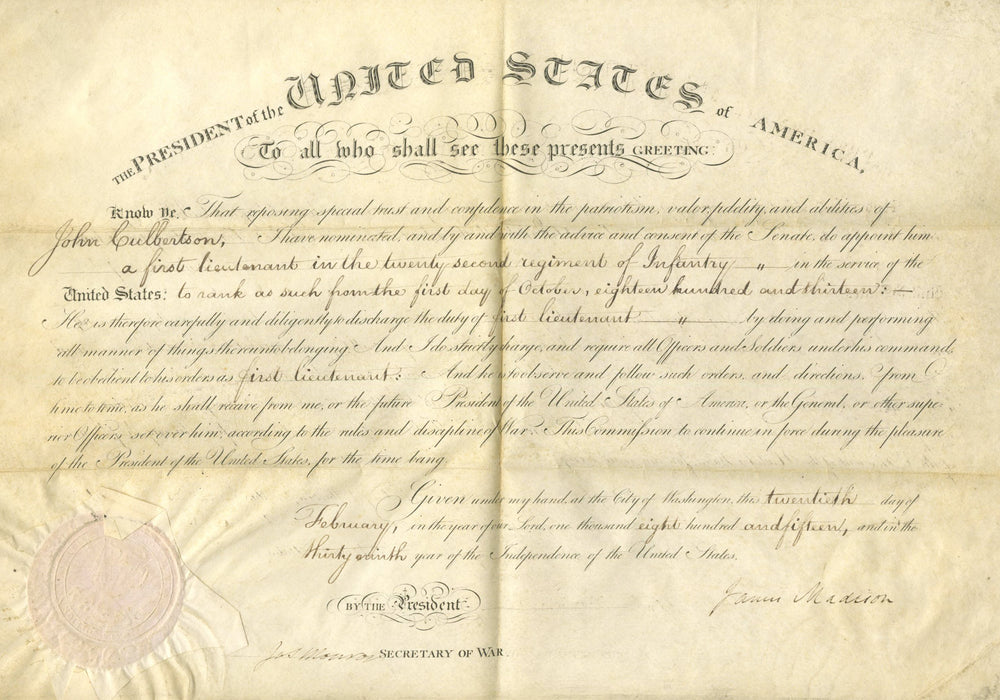 THE PRESIDENT of the UNITED STATES of AMERICA,
To all who shall see these presents GREETING:
Know Ye, That reposing special trust and confidence in the patriotism, valor, fidelity, and abilities of
John Culbertson, I have nominated, and by and with the advice and consent of the Senate, do appoint him
a first lieutenant in the twenty second regiment of Infantry " in the service of the
United States: to rank as such from the first day of October, eighteen hundred and thirteen: —
He is therefore carefully and diligently to discharge the duty of first lieutenant " by doing and performing
all manner of things thereunto belonging. And I do strictly charge, and require all Officers and Soldiers under his command,
to be obedient to his orders as first lieutenant: And he is to observe and follow such orders, and directions, from
time to time, as he shall receive from me, or the future President of the United States of America, or the General, or other supe-
rior Officers set over him, according to the rules and discipline of War. This Commission to continue in force during the pleasure
of the President of the United States, for the time being.
Given under my hand, at the City of Washington, this twentieth day of
February, in the year of our Lord, one thousand eight hundred and fifteen, and in the
thirty ninth year of the Independence of the United States.
James Madison
BY THE President
Jas Monroe SECRETARY OF WAR.